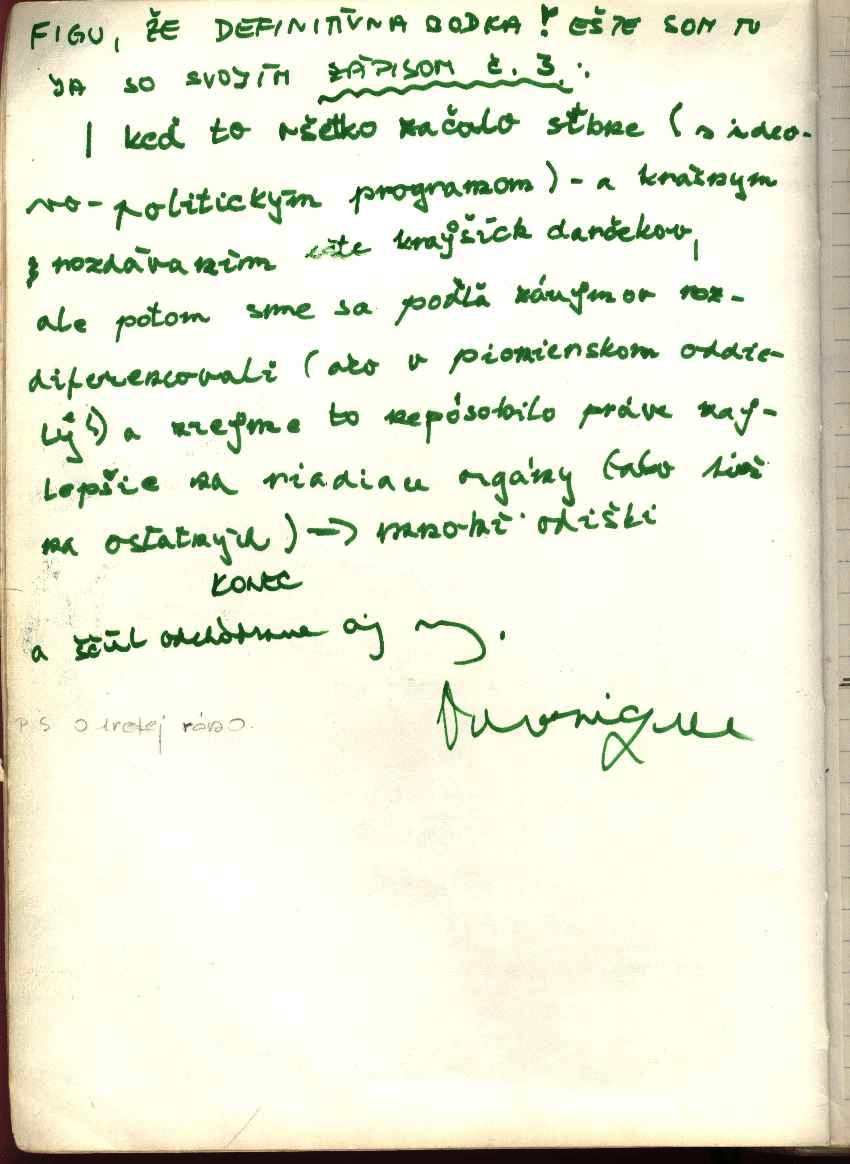 FIGU, ŽE DEFINITÍVNA BODKA! EŠTE SOM TU
JA SO SVOJÍM ZÁPISOM č. 3.:
I keď to všetko začalo sľubne (s ideo-
vo-politickým programom) - a krásnym
rozdávaním ešte krajších darčekov,
ale potom sme sa podľa záujmov roz-
diferencovali (ako v pionierskom oddie-
li) a zrejme to nepôsobilo práve naj-
lepšie na riadiace orgány (ako tiež
na ostatných) → mnohí odišli
KONEC
a ščúl odchádzame aj my.
P.S. O tretej ráno.